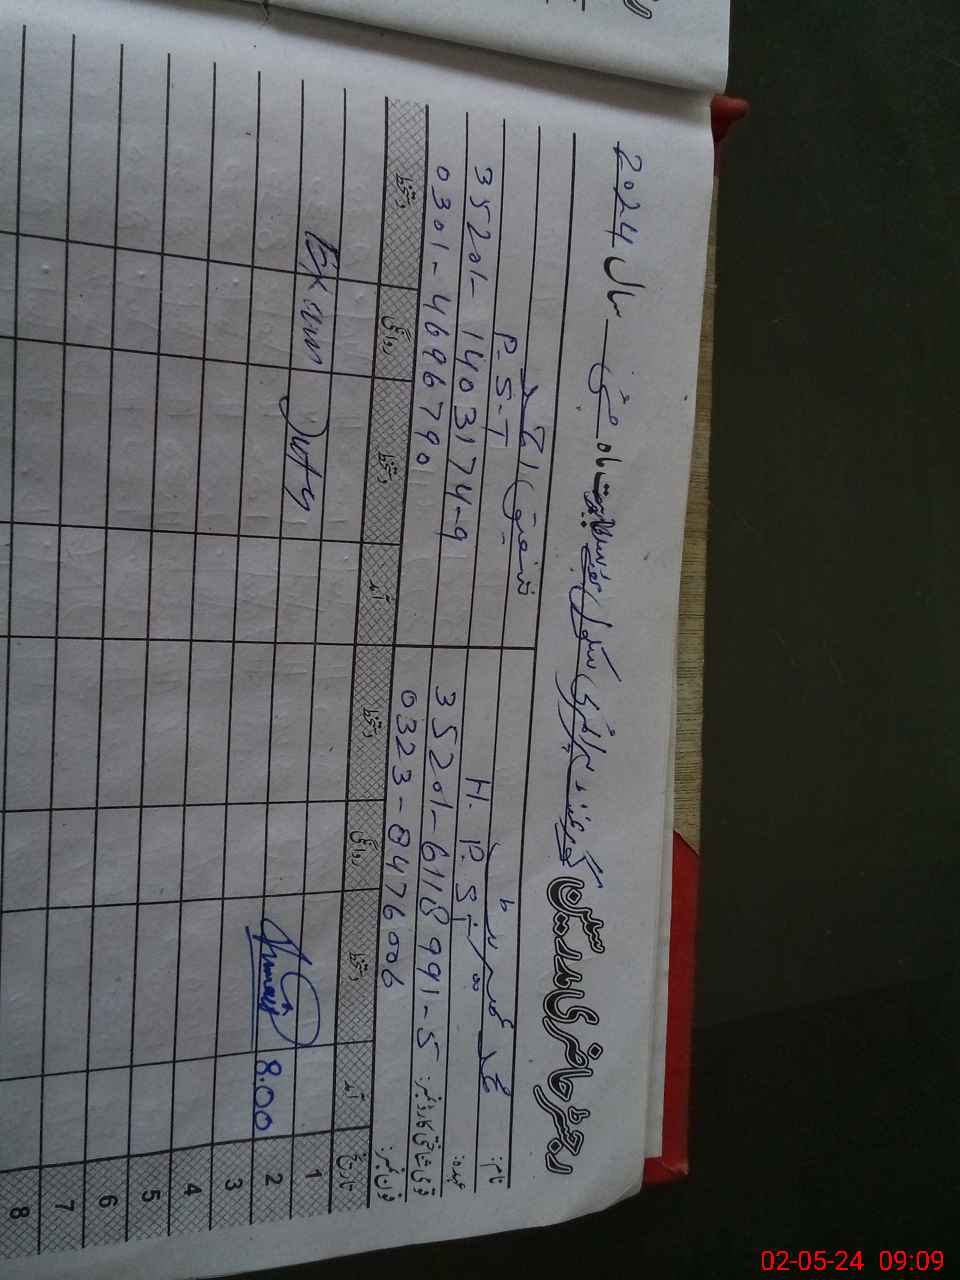 رجسٹر حاضری مدرسین گورنمنٹ پرائمری سکول ماہ مئی سال 2024
نام: محمد
شفقت
عہدہ: H.P.ST
P.S.T
قومی شناختی کارڈ نمبر: 35201-6118991-5
35201-1403174-9
فون نمبر: 0323-8476006
0301-4696790
تاریخ آمد دستخط روانگی دستخط آمد دستخط روانگی دستخط
1 Exam Duty
2 8:00
3
4
5
6
7
8
02-05-24 09:09